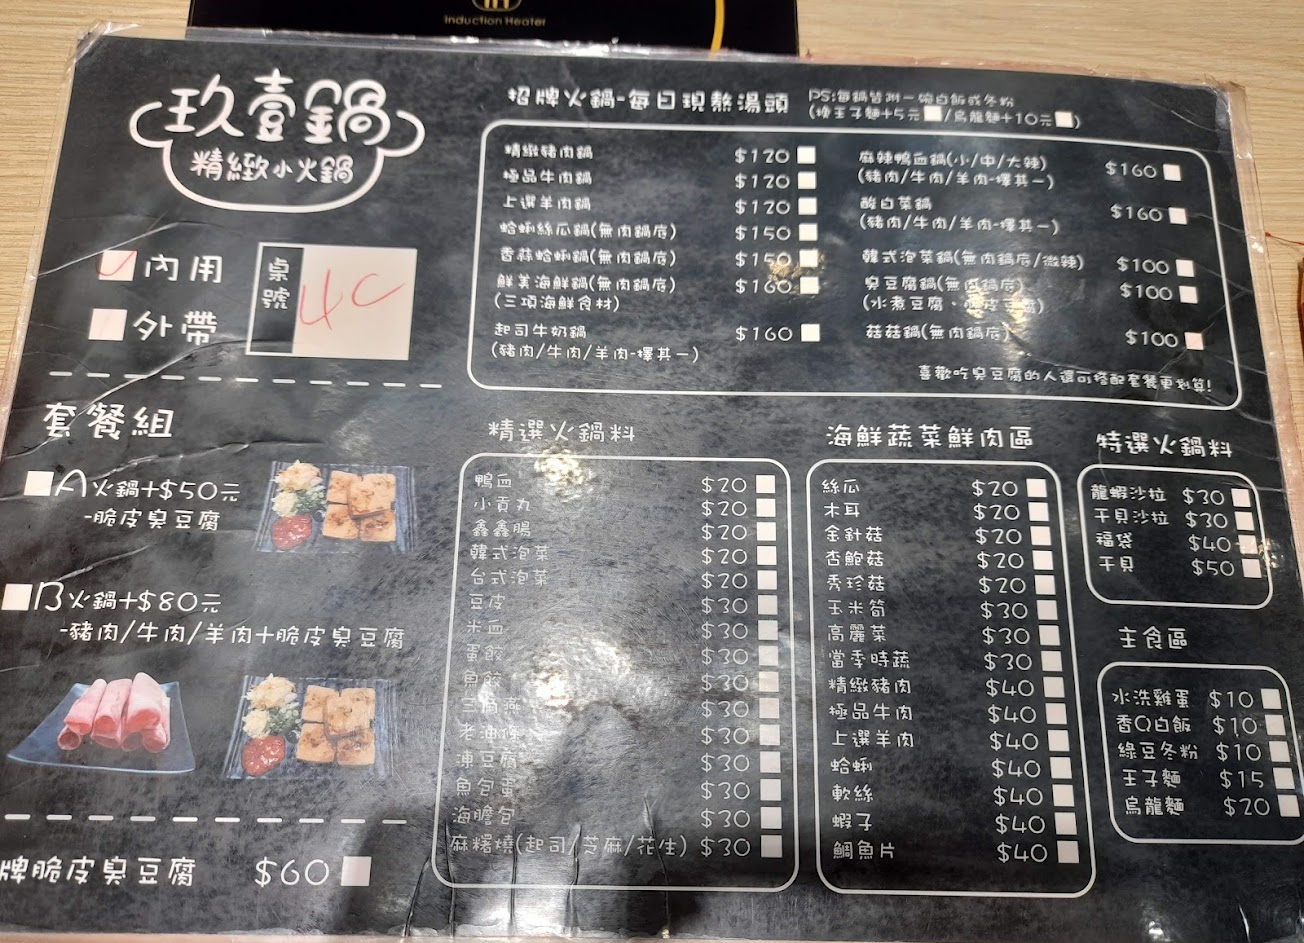 Induction Heater
玖壹鍋
精緻小火鍋
內用
外帶
桌號
4C
招牌火鍋-每日現熬湯頭
PS:海鍋皆附一碗白飯或冬粉
(換王子麵+5元 /烏龍麵+10元 )
精緻豬肉鍋 $120
極品牛肉鍋 $120
上選羊肉鍋 $120
蛤蜊絲瓜鍋(無肉鍋底) $150
香蒜蛤蜊鍋(無肉鍋底) $150
鮮美海鮮鍋(無肉鍋底) $160
(三項海鮮食材)
起司牛奶鍋 $160
(豬肉/牛肉/羊肉-擇其一)
麻辣鴨血鍋(小/中/大辣) $160
(豬肉/牛肉/羊肉-擇其一)
酸白菜鍋 $160
(豬肉/牛肉/羊肉-擇其一)
韓式泡菜鍋(無肉鍋底/微辣) $100
臭豆腐鍋(無肉鍋底) $100
(水煮豆腐、 皮豆腐)
菇菇鍋(無肉鍋底) $100
喜歡吃臭豆腐的人還可搭配套餐更划算!
套餐組
A火鍋+$50元
-脆皮臭豆腐
B火鍋+$80元
-豬肉/牛肉/羊肉+脆皮臭豆腐
牌脆皮臭豆腐 $60
精選火鍋料
鴨血 $20
小貢丸 $20
鑫鑫腸 $20
韓式泡菜 $20
台式泡菜 $20
豆皮 $30
米血 $30
蛋餃 $30
魚餃 $30
三角燕 $30
老油條 $30
凍豆腐 $30
魚包蛋 $30
海膽包 $30
麻糬燒(起司/芝麻/花生) $30
海鮮蔬菜鮮肉區
絲瓜 $20
木耳 $20
金針菇 $20
杏鮑菇 $20
秀珍菇 $20
玉米筍 $30
高麗菜 $30
當季時蔬 $30
精緻豬肉 $40
極品牛肉 $40
上選羊肉 $40
蛤蜊 $40
軟絲 $40
蝦子 $40
鯛魚片 $40
特選火鍋料
龍蝦沙拉 $30
干貝沙拉 $30
福袋 $40
干貝 $50
主食區
水洗雞蛋 $10
香Q白飯 $10
綠豆冬粉 $10
王子麵 $15
烏龍麵 $20